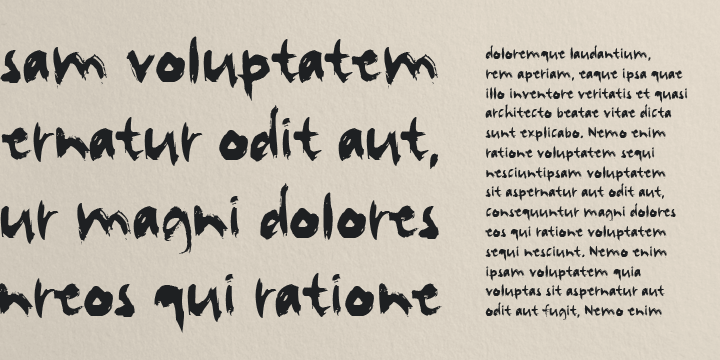 sam voluptatem
ernatur odit aut,
ur magni dolores
nreos qui ratione
doloremque laudantium,
rem aperiam, eaque ipsa quae
illo inventore veritatis et quasi
architecto beatae vitae dicta
sunt explicabo. Nemo enim
ratione voluptatem sequi
nesciuntipsam voluptatem
sit aspernatur aut odit aut,
consequuntur magni dolores
eos qui ratione voluptatem
sequi nesciunt. Nemo enim
ipsam voluptatem quia
voluptas sit aspernatur aut
odit aut fugit, Nemo enim